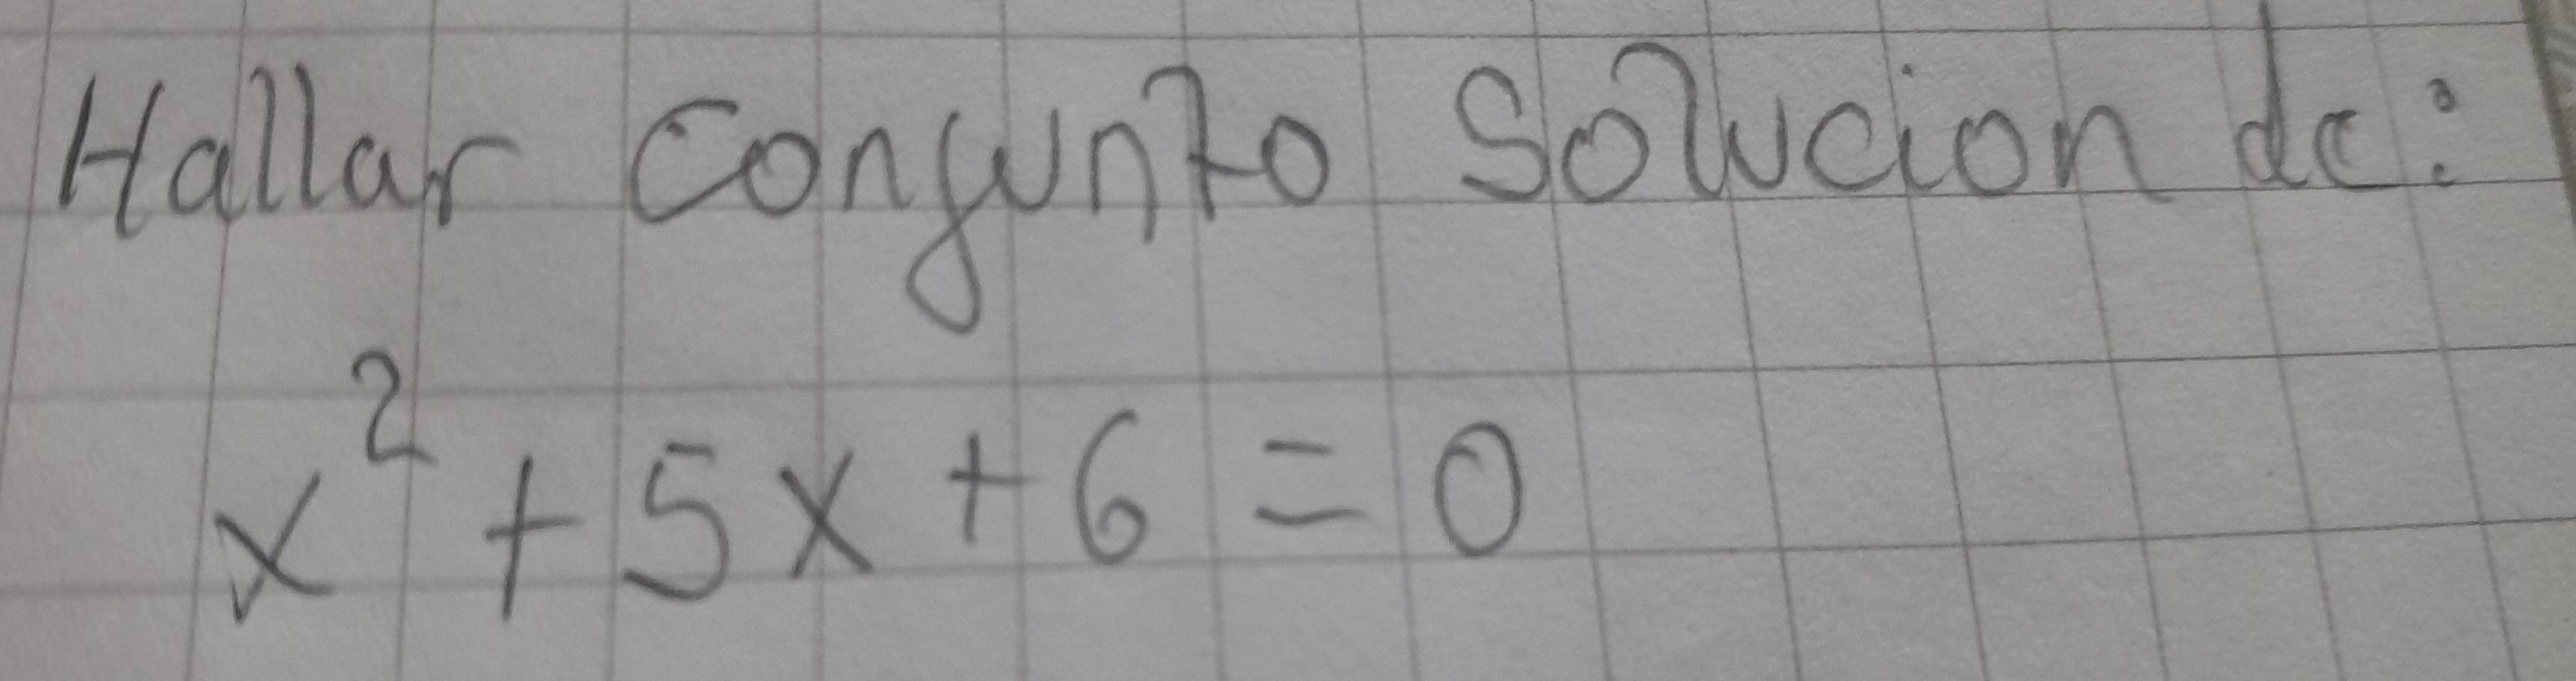 Hallar conjunto Solucion de:
x² + 5x + 6 = 0